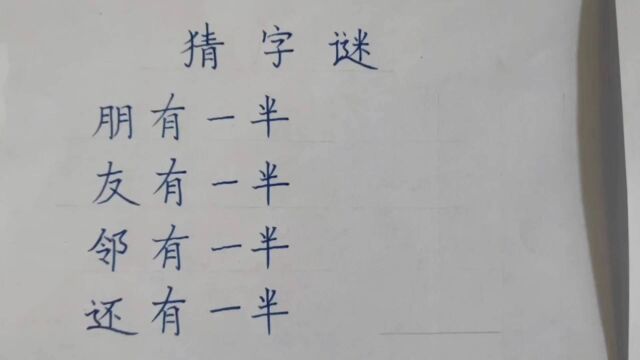 猜字谜
朋有一半
友有一半
邻有一半
还有一半